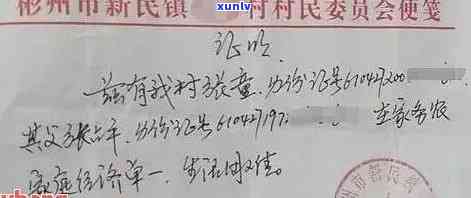 讯律
xunlv
彬州市新民镇 村村民委员会便笺
证明
兹有我村张童,身份证号610427200
其父张占平,身份证号610427197 在家务农
家庭经济单一、生活困难。